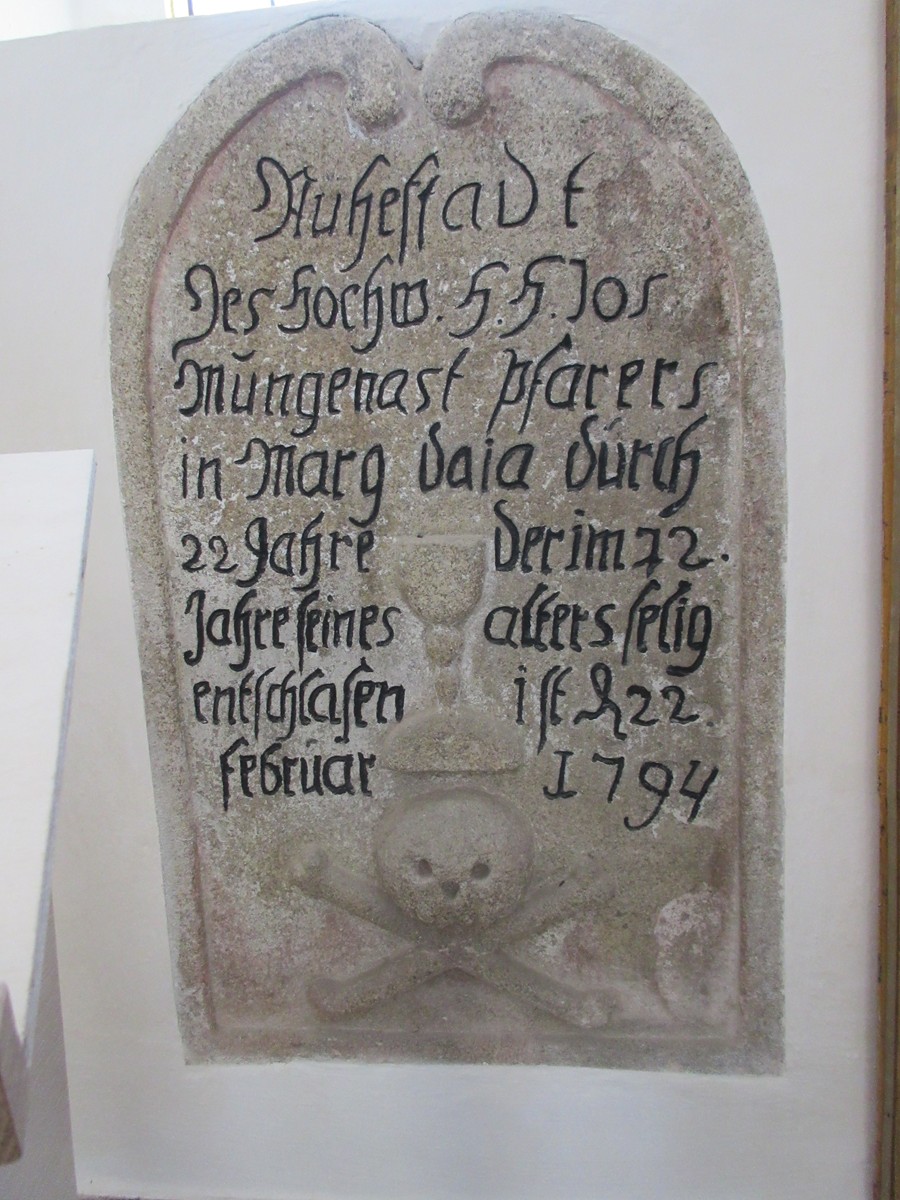 Ruhestadt
Des Hochw. H. H. Jos
Mŭngenast Pfarers
in Marg Daia dŭrch
22 Jahre der im 72.
Jahre seines alters selig
entschlafen ist d 22.
februar 1794